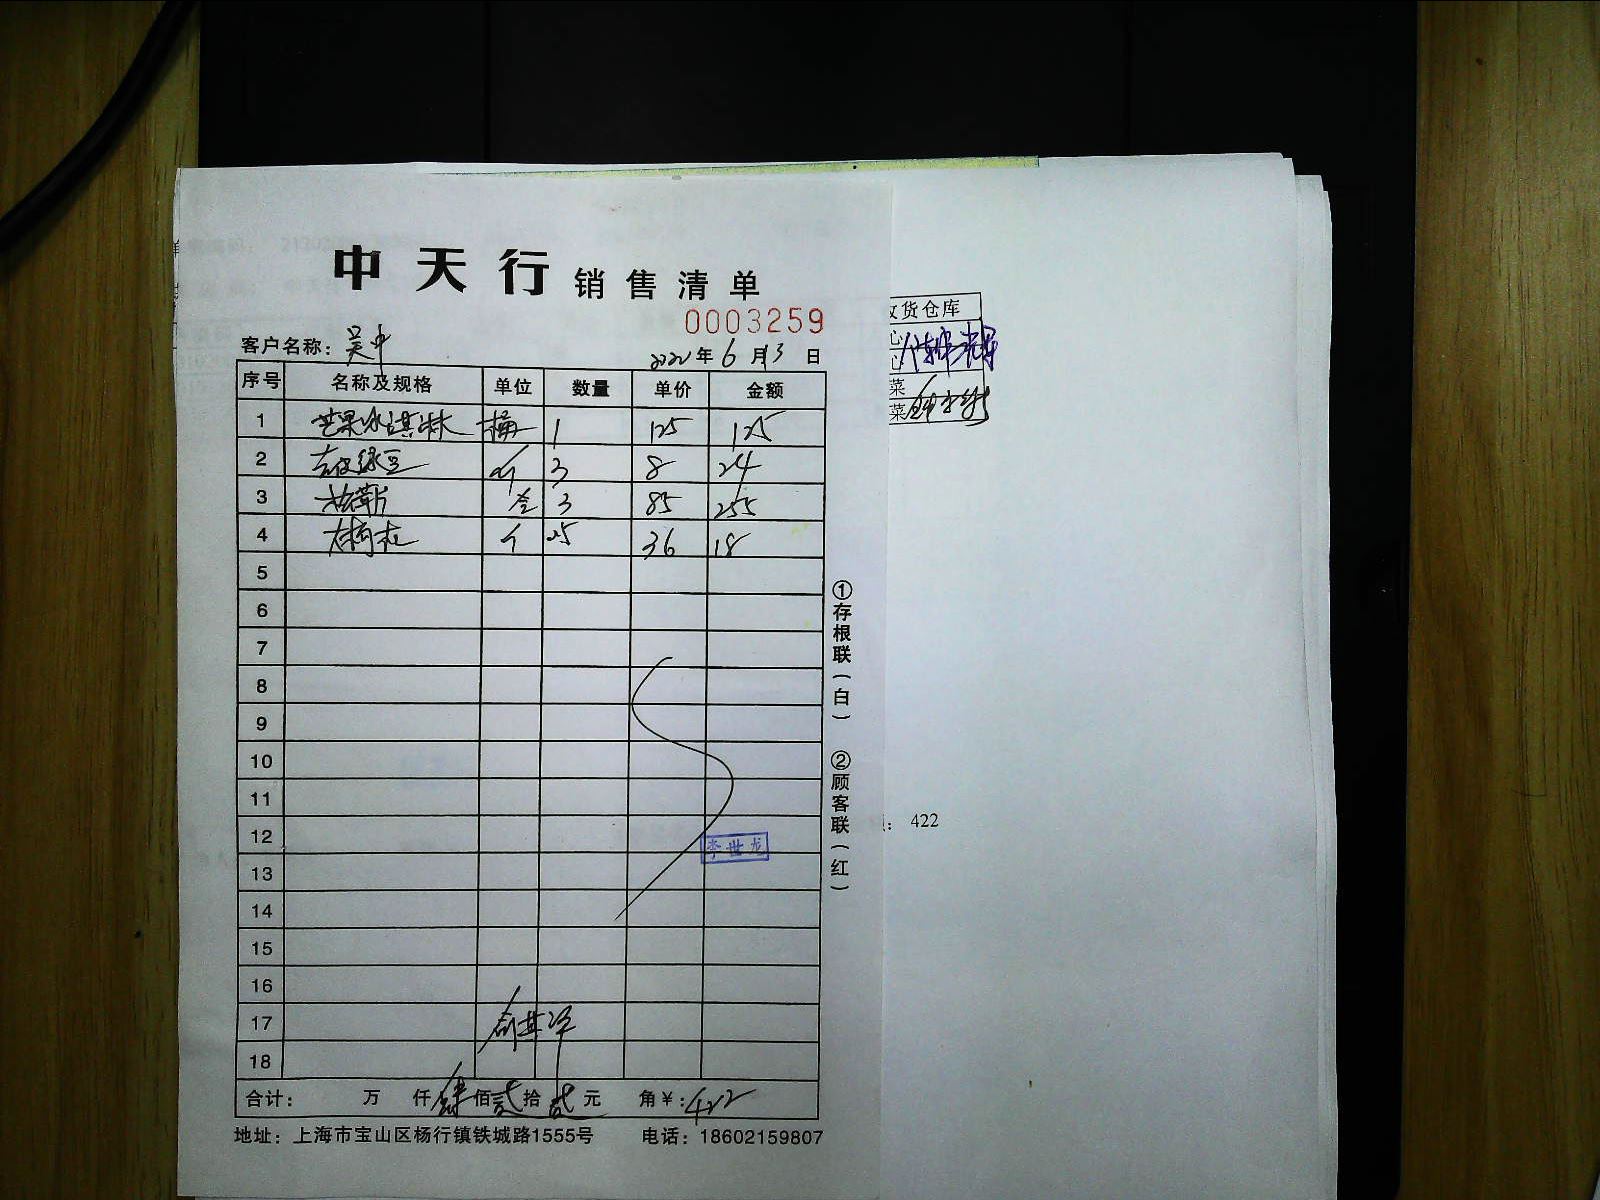 中天行 销售清单
0003259
客户名称: 吴中 2022年6月13日
序号 名称及规格 单位 数量 单价 金额
1 芒果冰淇淋 桶 1 125 125
2 去皮绿豆 斤 3 8 24
3 盒 3 85 255
4 个 25 36 18
5
6
7
8
9
10
11
12
李世龙
13
14
15
16
17
18
合计: 万 仟 肆佰 贰拾 贰元 角¥: 422
地址: 上海市宝山区杨行镇铁城路1555号 电话: 18602159807
①存根联(白) ②顾客联(红)
收货仓库
心
心
菜
菜
: 422